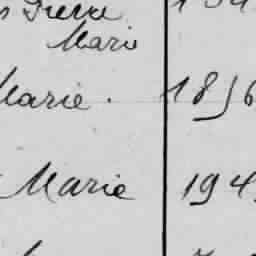 Pierre
Marie
Marie . 1856
Marie 194